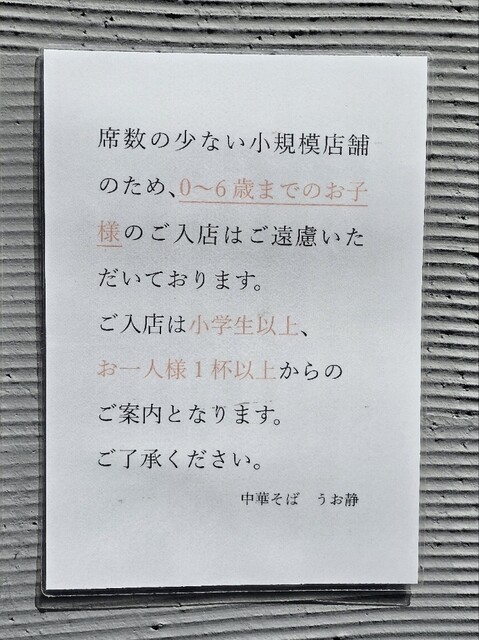 席数の少ない小規模店舗
のため、0〜6歳までのお子
様のご入店はご遠慮いた
だいております。
ご入店は小学生以上、
お一人様1杯以上からの
ご案内となります。
ご了承ください。
中華そば　うお静